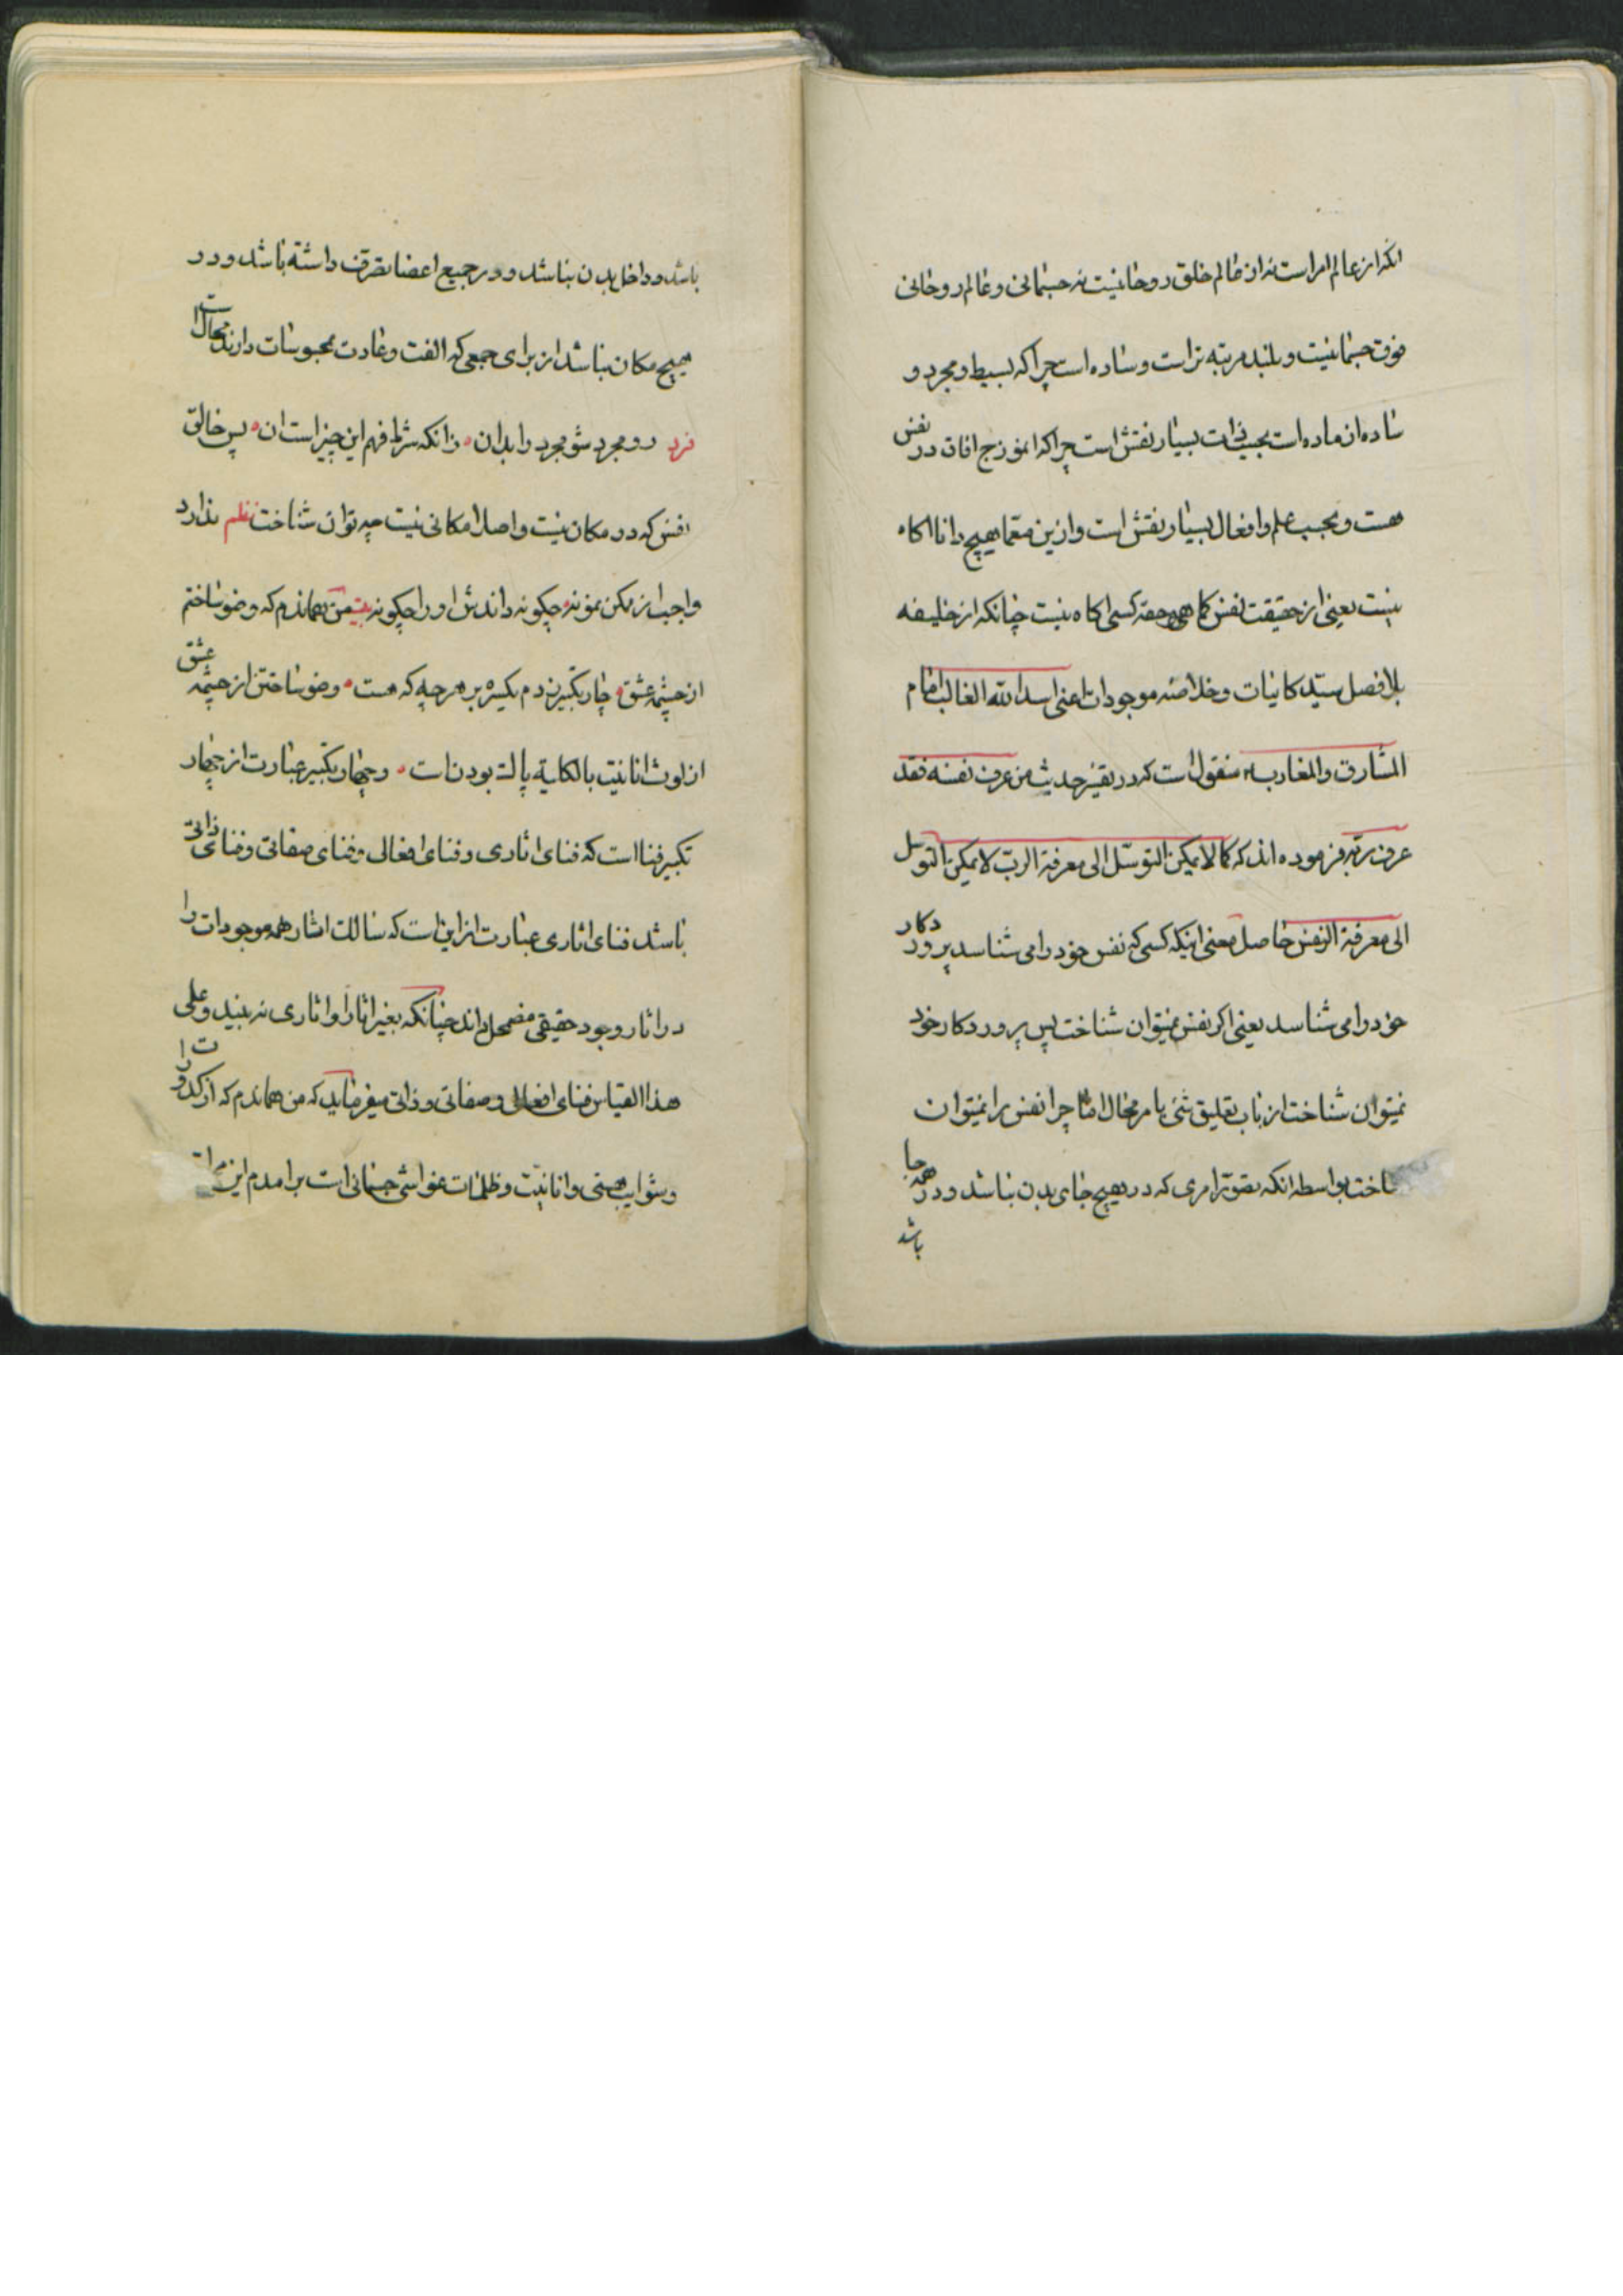 انکه از عالم امر است نه از عالم خلق روحانیست نه جسمانی و عالم روحانی
فوق جسمانیست و بلند مرتبه تر است و ساده است چرا که بسیط و مجرد و
ساده از ماده است بحسب ذات بسیار نقش است چرا که انموزج افاق در نفس
هست و بحسب علم و افعال بسیار نقش است و ازین معما هیچ دانا اکاه
نیست یعنی از حقیقت نفس کما هی حقه کسی اکاه نیست چنانکه از خلیفه
بلا فصل سید کاینات و خلاصه موجودات اعنی اسد الله الغالب امام
المشارق والمغارب منقول است که در تفسیر حدیث من عرف نفسه فقد
عرف ربه فرموده اند که کما لا یمکن التوسل الی معرفة الرب لا یمکن التوسل
الی معرفة النفس حاصل معنی اینکه کسی که نفس خود را می شناسد پروردکار
خود را می شناسد یعنی اکر نفس نمیتوان شناخت پس پروردکار خود
نمیتوان شناخت از باب تعلیق شئ بامر محال اما چرا نفس را نمیتوان
شناخت بواسطه انکه تصور امری که در هیچ جای بدن نباشد و در همه جا
باشد
باشد و داخل بدن نباشد و در جمیع اعضا تصرف داشته باشد و در
هیچ مکان نباشد از برای جمعی که الفت و عادت بمحسوسات دارند محال است
فرد رو مجرد شو مجرد را بدان ه زانکه شرط فهم این چیز است ان ه پس خالق
نفس که در مکان نیست و اصلا مکانی نیست چه توان شناخت نظم ندارد
واجب از ممکن نمونه ه چکونه داندش او را چکونه بیت من هماندم که وضو ساختم
از چشمه عشق ه چار تکبیر زدم یکسره بر هر چه که هست ه وضو ساختن از چشمه عشق
از لوث انانیت بالکلیة پاک بودن است ه و چهار تکبیر عبارت از چهار
تکبیر فنا است که فنای اثاری و فنای افعالی و فنای صفاتی و فنای ذاتی
باشد فنای اثاری عبارت از این است که سالک اثار همه موجودات را
در اثار وجود حقیقی مضمحل داند چنانکه بغیر اثار او اثاری نه بیند و علی
هذا القیاس فنای افعالی و صفاتی و ذاتی میفرماید که من هماندم که از کدورات
و شوایب هستی و انانیت و ظلمات غواشی جسمانی است برامدم این